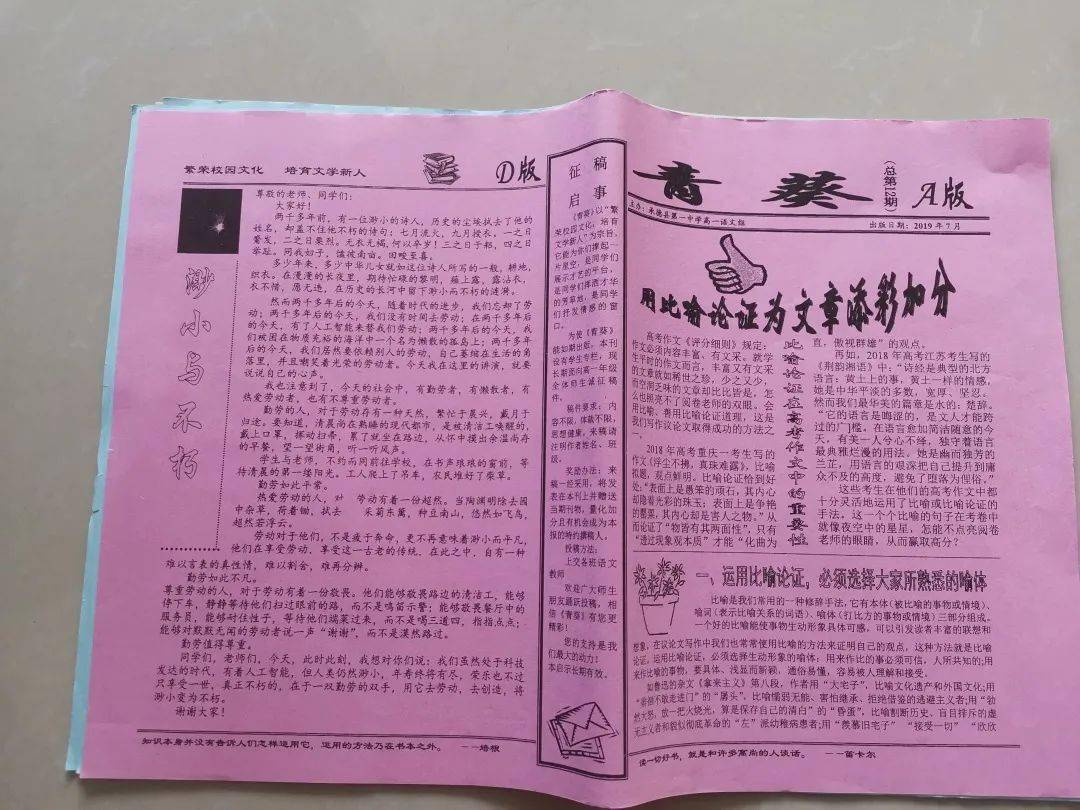 繁荣校园文化 培育文学新人
D版
渺小与不朽
尊敬的老师、同学们:
大家好!
两千多年前,有一位渺小的诗人,历史的尘埃拭去了他的
姓名,却盖不住他不朽的诗句:七月流火,九月授衣。一之日
觱发,二之日栗烈。无衣无褐,何以卒岁!三之日于耜,四之日
举趾。同我妇子,馌彼南亩。田畯至喜。
多少年来,多少中华儿女就如这位诗人所写的一般,耕地,
织衣。在漫漫的长夜里,期待忙碌的黎明,陌上露,露沾衣,
衣不惜,愿无违,在历史的长河中留下渺小而不朽的涟漪。
然而两千多年后的今天,随着时代的进步,我们忘却了劳
动;两千多年后的今天,我们没有时间去劳动;在两千多年后
的今天,有了人工智能来替我们劳动;两千多年后的今天,我
们被困在物质充裕的海洋中一个名为懒散的孤岛上;两千多年
后的今天,我们居然要依赖别人的劳动,自己萎缩在生活的角
落里,并且嘲笑着光荣的劳动者。今天我在这里的讲演,就要
说说自己的心声。
我也注意到了,今天的社会中,有勤劳者,有懒散者,有
热爱劳动者,也有不尊重劳动者。
勤劳的人,对于劳动存有一种天然,繁忙于晨兴,戴月于
归途。要知道,清晨尚在熟睡的现代都市,是被清洁工唤醒的,
戴上口罩,挪动扫帚,累了就坐在路边,从怀中摸出余温尚存
的早餐,望一望街角,听一听风声。
学生与老师,不约而同前往学校,在书声琅琅的窗前,等
待清晨的第一缕阳光。工人爬上了吊车,农民堆好了柴草。
勤劳如此平常。
热爱劳动的人,对 劳动有着一份超然。当陶渊明除去园
中杂草,荷着锄,拭去 采菊东篱,种豆南山,悠然如飞鸟,
超然若浮云。
劳动对于他们,不是疲于奔命,更不再意味着渺小而平凡,
他们在享受劳动,享受这一古老的传统,在此之中,自有一种
难以言表的真性情,难以割舍,难再分辨。
勤劳如此不凡。
尊重劳动的人,对于劳动有着一份敬畏。他们能够敬畏路边的清洁工,能够
停下车,静静等待他们扫过眼前的路,而不是鸣笛示警;能够敬畏餐厅中的
服务员,能够耐住性子,等待他们端菜过来,而不是喝三道四,指指点点;
能够对默默无闻的劳动者说一声“谢谢”,而不是漠然路过。
勤劳值得尊重。
同学们,老师们,今天,此时此刻,我想对你们说:我们虽然处于科技
发达的时代,有着人工智能,但人类仍然渺小,年寿终将有尽,荣乐也不过
只享受一世。真正不朽的,在于一双勤劳的双手,用它去劳动,去创造,将
渺小变为不朽。
谢谢大家!
知识本身并没有告诉人们怎样运用它,运用的方法乃在书本之外。 ——培根
征稿
启事
《青葵》以“繁
荣校园文化,培育
文学新人”为宗旨,
它能为你们撑起一
片星空,是同学们
展示才艺的平台,
是同学们挥洒才华
的芳草地,是同学
们抒发情感的窗
口。
为使《青葵》
能如期出版,本刊
设有学生专栏,现
长期面向高一年级
全体师生诚征稿
件。
稿件要求:内
容不限,体裁不限,
思想健康。来稿请
注明作者姓名、班
级。
奖励办法:来
稿一经采用,将发
表在本刊上并赠送
当期刊物,量化加
分且有机会成为本
报的特约撰稿人。
投稿方法:
上交各班语文
教师
欢迎广大师生
朋友踊跃投稿,相
信《青葵》有您更
精彩!
您的支持是我
们最大的动力!
本启示长期有效。
青葵
(总第12期)
A版
主办:承德县第一中学高一语文组
出版日期:2019年7月
用比喻论证为文章添彩加分
高考作文《评分细则》规定:
作文必须内容丰富、有文采。就学
生平时的作文而言,丰富又有文采
的文章就如稀世之珍,少之又少,
而空洞乏味的文章却比比皆是,怎
么也照亮不了阅卷老师的双眼。会
用比喻、善用比喻论证道理,这是
我们写作议论文取得成功的方法之
一。
2018年高考重庆一考生写的
作文《浮尘不拂,真珠难露》,比喻
拟题,观点鲜明。比喻论证恰到好
处:“表面上是愚笨的顽石,其内心
却隐着光彩的珠玉;表面上是争艳
的罂粟,其内心却是害人之物。”从
而论证了“物皆有其两面性”,只有
“透过现象观本质”才能“化曲为
比喻论证在高考作文中的重要性
直,傲视群雄”的观点。
再如,2018年高考江苏考生写的
《荆韵湘语》中:“诗经是典型的北方
语言:黄土上的事,黄土一样的情感,
她是中华平淡的多数,宽厚、坚忍。
然而我们最华美的篇章是水的:楚辞。
“它的语言是晦涩的,是文人才能跨
过的广门槛,在语言愈加简洁随意的今
天,有美一人兮心不绛,独守着语言
最典雅烂漫的用法。她是幽而独芳的
兰芷,用语言的艰深把自己提升到庸
众不及的高度,避免了堕落为俚俗。”
这些考生在他们的高考作文中都
十分灵活地运用了比喻或比喻论证的
手法。这一个个比喻的句子在考卷中
就像夜空中的星星,怎能不点亮阅卷
老师的眼睛,从而赢取高分?
一、运用比喻论证,必须选择大家所熟悉的喻体
比喻是我们常用的一种修辞手法,它有本体(被比喻的事物或情境)、
喻词(表示比喻关系的词语)、喻体(打比方的事物或情境)三部分组成。
一个好的比喻能使事物生动形象具体可感,可以引发读者丰富的联想和
想象,在议论文写作中我们也常常使用比喻的方法来证明自己的观点,这种方法就是比喻
论证。运用比喻论证,必须选择生动形象的喻体:用来作比的事必须可信,人所共知的;用
来作比喻的事物,要具体、浅显而新颖,通俗易懂,容易被人理解和接受。
如鲁迅的杂文《拿来主义》第八段,作者用“大宅子”,比喻文化遗产和外国文化;用
“徘徊不敢走进门”的“孱头”,比喻懦弱无能、害怕继承、拒绝借鉴的逃避主义者;用“勃
然大怒,放一把火烧光,算是保存自己的清白”的“昏蛋”,比喻割断历史、盲目排斥的虚
无主义者和貌似彻底革命的“左”派幼稚病患者;用“羡慕旧宅子”“接受一切”“欣欣
读一切好书,就是和许多高尚的人谈话。 ——笛卡尔